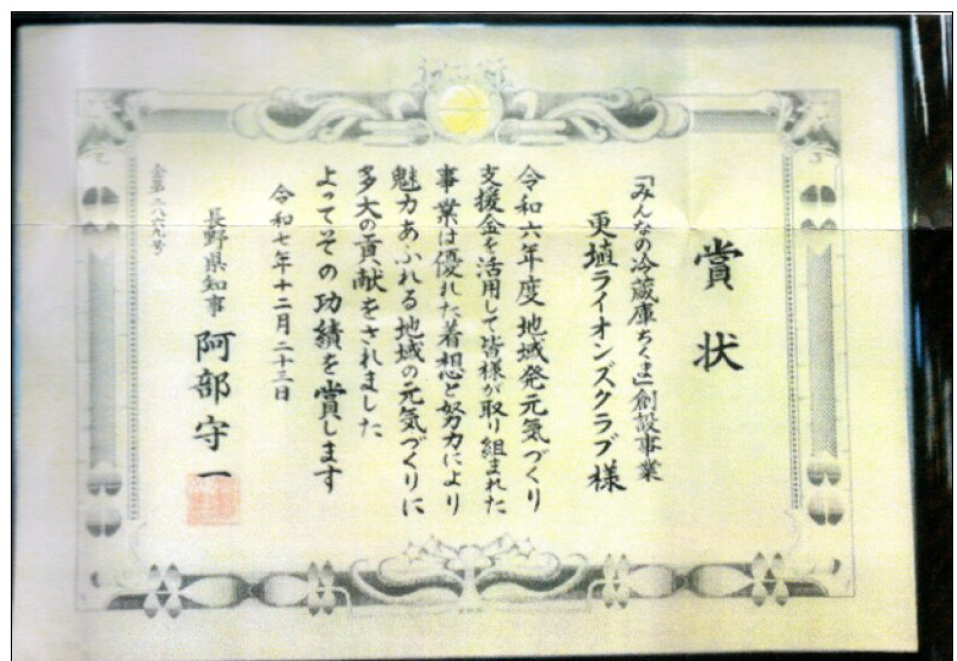 賞状
「みんなの冷蔵庫ちくま」創設事業
更埴ライオンズクラブ様
令和六年度地域発元気づくり
支援金を活用して皆様が取り組まれた
事業は優れた着想と努力により
魅力あふれる地域の元気づくりに
多大の貢献をされました
よってその功績を賞します
令和七年十二月二十三日
長野県知事 阿部守一